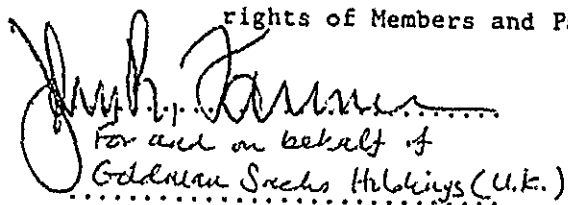 rights of Members and Pa
For and on behalf of
Goldman Sachs Holdings (U.K.)